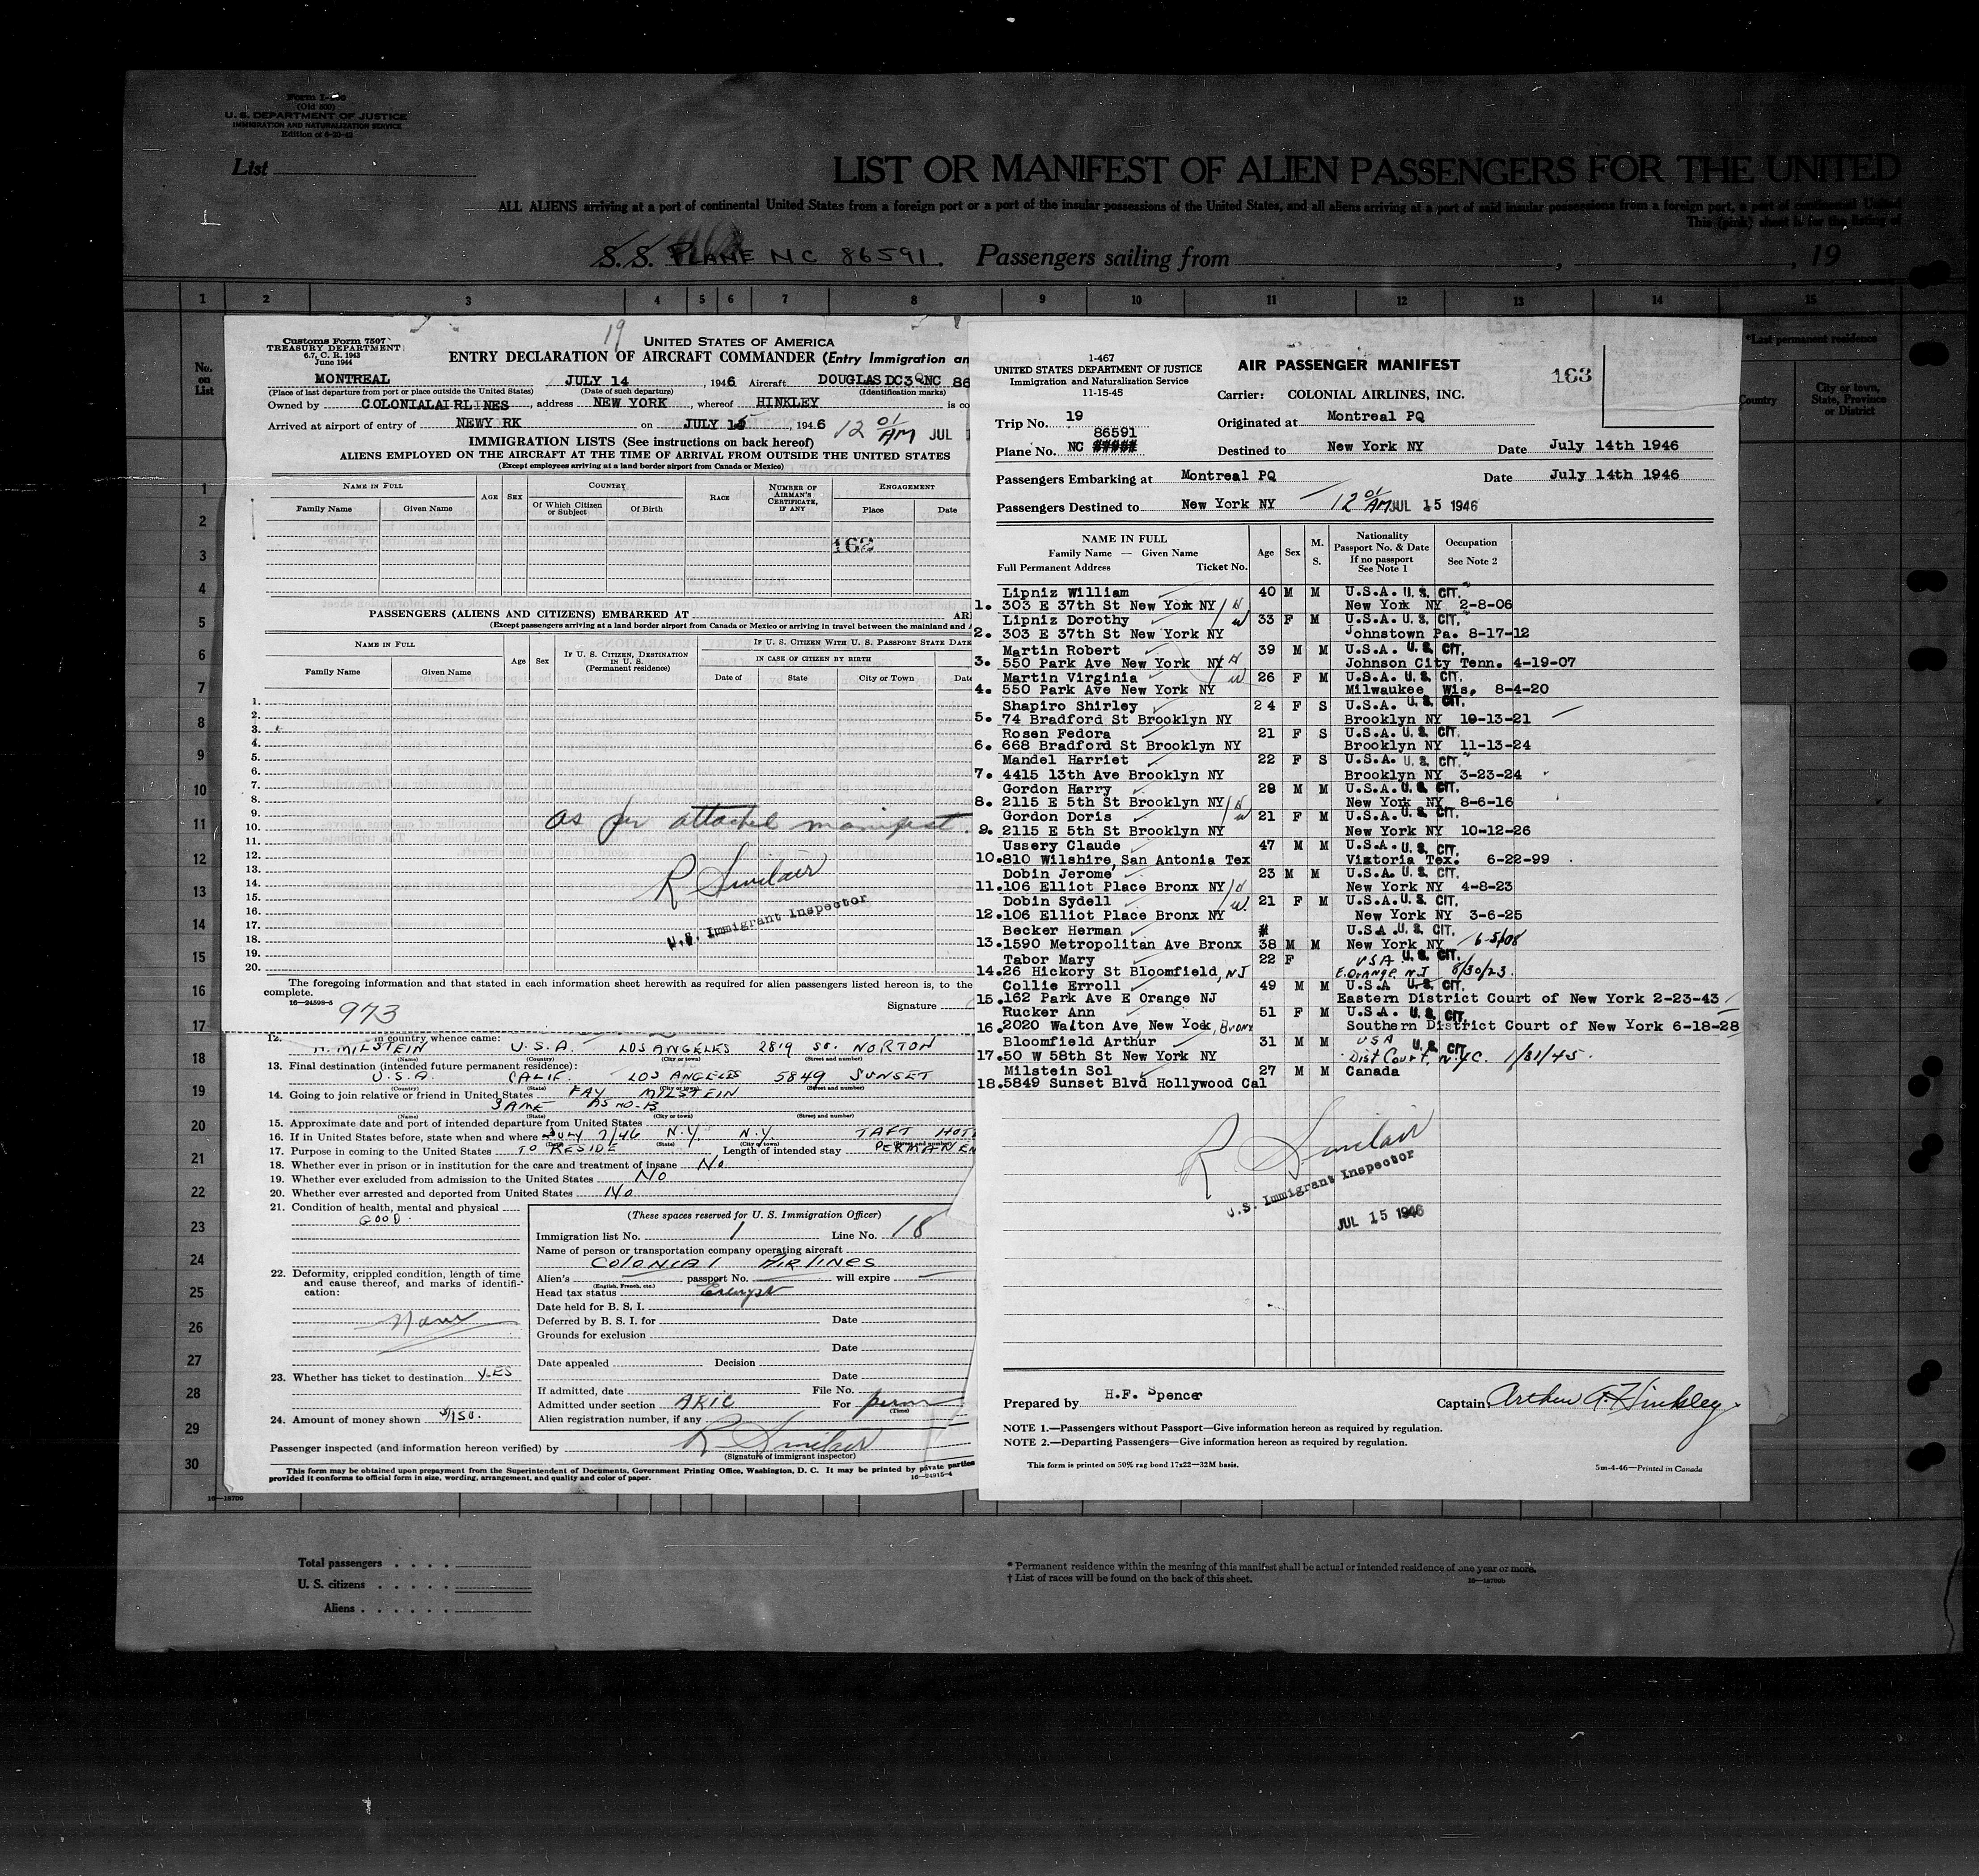 Form I-
(Old 500)
U. S. DEPARTMENT OF JUSTICE
IMMIGRATION AND NATURALIZATION SERVICE
Edition of
List
LIST OR MANIFEST OF ALIEN PASSENGERS FOR THE UNITED
ALL ALIENS arriving at a port of continental United States from a foreign port or a port of the insular possessions of the United States, and all aliens arriving at a port of said insular possessions from a foreign port, a port of continental United
This (pink) sheet is for the listing of
S. S. PLANE NC 86591. Passengers sailing from , , 19
1 2 3 4 5 6 7 8 9 10 11 12 13 14 15
No. on List
*Last permanent residence
Country
City or town, State, Province or District
1
2
3
4
5
6
7
8
9
10
11
12
13
14
15
16
17
18
19
20
21
22
23
24
25
26
27
28
29
30
Customs Form 7507
TREASURY DEPARTMENT
6.7, C. R. 1943
June 1944
19
UNITED STATES OF AMERICA
ENTRY DECLARATION OF AIRCRAFT COMMANDER (Entry Immigration an
MONTREAL JULY 14 , 1946 Aircraft DOUGLAS DC3 NC 86
(Place of last departure from port or place outside the United States) (Date of such departure) (Identification marks)
Owned by COLONIALAIRLINES , address NEW YORK , whereof HINKLEY is co
Arrived at airport of entry of NEWY RK on JULY 15 , 1946 12 01 AM JUL
IMMIGRATION LISTS (See instructions on back hereof)
ALIENS EMPLOYED ON THE AIRCRAFT AT THE TIME OF ARRIVAL FROM OUTSIDE THE UNITED STATES
(Except employees arriving at a land border airport from Canada or Mexico)
NAME IN FULL AGE SEX COUNTRY RACE NUMBER OF AIRMAN'S CERTIFICATE, IF ANY ENGAGEMENT
Family Name Given Name Of Which Citizen or Subject Of Birth Place Date
162
PASSENGERS (ALIENS AND CITIZENS) EMBARKED AT AR
(Except passengers arriving at a land border airport from Canada or Mexico or arriving in travel between the mainland and
NAME IN FULL Age Sex IF U. S. CITIZEN, DESTINATION IN U. S. (Permanent residence) IF U. S. CITIZEN WITH U. S. PASSPORT STATE DATE
IN CASE OF CITIZEN BY BIRTH
Family Name Given Name Date of State City or Town Date
1.
2.
3.
4.
5.
6.
7.
8.
9.
10.
11.
12.
13.
14.
15.
16.
17.
18.
19.
20.
as per attached manifest.
R Sinclair
U.S. Immigrant Inspector
The foregoing information and that stated in each information sheet herewith as required for alien passengers listed hereon is, to the
complete.
16—24598-5
973
Signature
12. in country whence came:
H. MILSTEIN U.S.A. LOS ANGELES 2819 SO. NORTON
(Name) (Country) (City or town) (Street and number)
13. Final destination (intended future permanent residence):
U.S.A. CALIF. LOS ANGELES 5849 SUNSET
(Country) (State) (City or town) (Street and number)
14. Going to join relative or friend in United States FAY MILSTEIN
SAME AS NO-13
(Name) (State) (City or town) (Street and number)
15. Approximate date and port of intended departure from United States
16. If in United States before, state when and where JULY 7/46 N.Y. N.Y TAFT HOT
(Date) (State) (City or town) (Street and number)
17. Purpose in coming to the United States TO RESIDE Length of intended stay PERMANEN
18. Whether ever in prison or in institution for the care and treatment of insane No
19. Whether ever excluded from admission to the United States No
20. Whether ever arrested and deported from United States No
21. Condition of health, mental and physical
GOOD.
22. Deformity, crippled condition, length of time and cause thereof, and marks of identification:
None
23. Whether has ticket to destination YES
24. Amount of money shown $150.
(These spaces reserved for U. S. Immigration Officer)
Immigration list No. 1 Line No. 18
Name of person or transportation company operating aircraft
COLONIAL AIRLINES
Alien's passport No. will expire
(English, French, etc.)
Head tax status Exempt
Date held for B. S. I.
Deferred by B. S. I. for Date
Grounds for exclusion
Date
Date appealed Decision
Date
If admitted, date File No.
Admitted under section ARIC For perm
(Time)
Alien registration number, if any
Passenger inspected (and information hereon verified) by R Sinclair
(Signature of immigrant inspector)
This form may be obtained upon prepayment from the Superintendent of Documents, Government Printing Office, Washington, D. C. It may be printed by private parties
provided it conforms to official form in size, wording, arrangement, and quality and color of paper.
16—24915-4
I-467
UNITED STATES DEPARTMENT OF JUSTICE
Immigration and Naturalization Service
11-15-45
AIR PASSENGER MANIFEST
163
Carrier: COLONIAL AIRLINES, INC.
Trip No. 19
Originated at Montreal PQ
86591
Plane No. NC #####
Destined to New York NY Date July 14th 1946
Passengers Embarking at Montreal PQ Date July 14th 1946
Passengers Destined to New York NY 12 01 AM JUL 15 1946
NAME IN FULL
Family Name — Given Name
Full Permanent Address Ticket No.
Age Sex M. S.
Nationality
Passport No. & Date
If no passport
See Note 1
Occupation
See Note 2
Lipniz William 40 M M U.S.A. U. S. CIT.
1. 303 E 37th St New York NY H New York NY 2-8-06
Lipniz Dorothy 33 F M U.S.A. U. S. CIT.
2. 303 E 37th St New York NY W Johnstown Pa. 8-17-12
Martin Robert 39 M M U.S.A. U. S. CIT.
3. 550 Park Ave New York NY H Johnson City Tenn. 4-19-07
Martin Virginia 26 F M U.S.A. U. S. CIT.
4. 550 Park Ave New York NY W Milwaukee Wis. 8-4-20
Shapiro Shirley 24 F S U.S.A. U. S. CIT.
5. 74 Bradford St Brooklyn NY Brooklyn NY 10-13-21
Rosen Fedora 21 F S U.S.A. U. S. CIT.
6. 668 Bradford St Brooklyn NY Brooklyn NY 11-13-24
Mandel Harriet 22 F S U.S.A. U. S. CIT.
7. 4415 13th Ave Brooklyn NY Brooklyn NY 3-23-24
Gordon Harry 29 M M U.S.A. U. S. CIT.
8. 2115 E 5th St Brooklyn NY H New York NY 8-6-16
Gordon Doris 21 F M U.S.A. U. S. CIT.
9. 2115 E 5th St Brooklyn NY W New York NY 10-12-26
Ussery Claude 47 M M U.S.A. U. S. CIT.
10. 810 Wilshire, San Antonia Tex Victoria Tex. 6-22-99
Dobin Jerome 23 M M U.S.A. U. S. CIT.
11. 106 Elliot Place Bronx NY H New York NY 4-8-23
Dobin Sydell 21 F M U.S.A. U. S. CIT.
12. 106 Elliot Place Bronx NY W. New York NY 3-6-25
Becker Herman # U.S.A. U. S. CIT.
13. 1590 Metropolitan Ave Bronx 38 M M New York NY 6-5/08
Tabor Mary 22 F USA U. S. CIT.
14. 26 Hickory St Bloomfield, NJ E. Orange NJ 8/30/23.
Collie Erroll 49 M M U.S.A U. S. CIT.
15. 162 Park Ave E Orange NJ Eastern District Court of New York 2-23-43
Rucker Ann 51 F M U.S.A. U. S. CIT.
16. 2020 Walton Ave, New York, Bronx Southern District Court of New York 6-18-28
Bloomfield Arthur 31 M M USA U. S. CIT.
17. 50 W 58th St New York NY Dist Court, N.Y.C. 1/31/45.
Milstein Sol 27 M M Canada
18. 5849 Sunset Blvd Hollywood Cal
R. Sinclair
U.S. Immigrant Inspector
JUL 15 1946
Prepared by H.F. Spencer
Captain Arthur G. Hinkley
NOTE 1.—Passengers without Passport—Give information hereon as required by regulation.
NOTE 2.—Departing Passengers—Give information hereon as required by regulation.
This form is printed on 50% rag bond 17x22—32M basis.
5m-4-46—Printed in Canada
16—18700
Total passengers
U. S. citizens
Aliens
* Permanent residence within the meaning of this manifest shall be actual or intended residence of one year or more.
† List of races will be found on the back of this sheet.